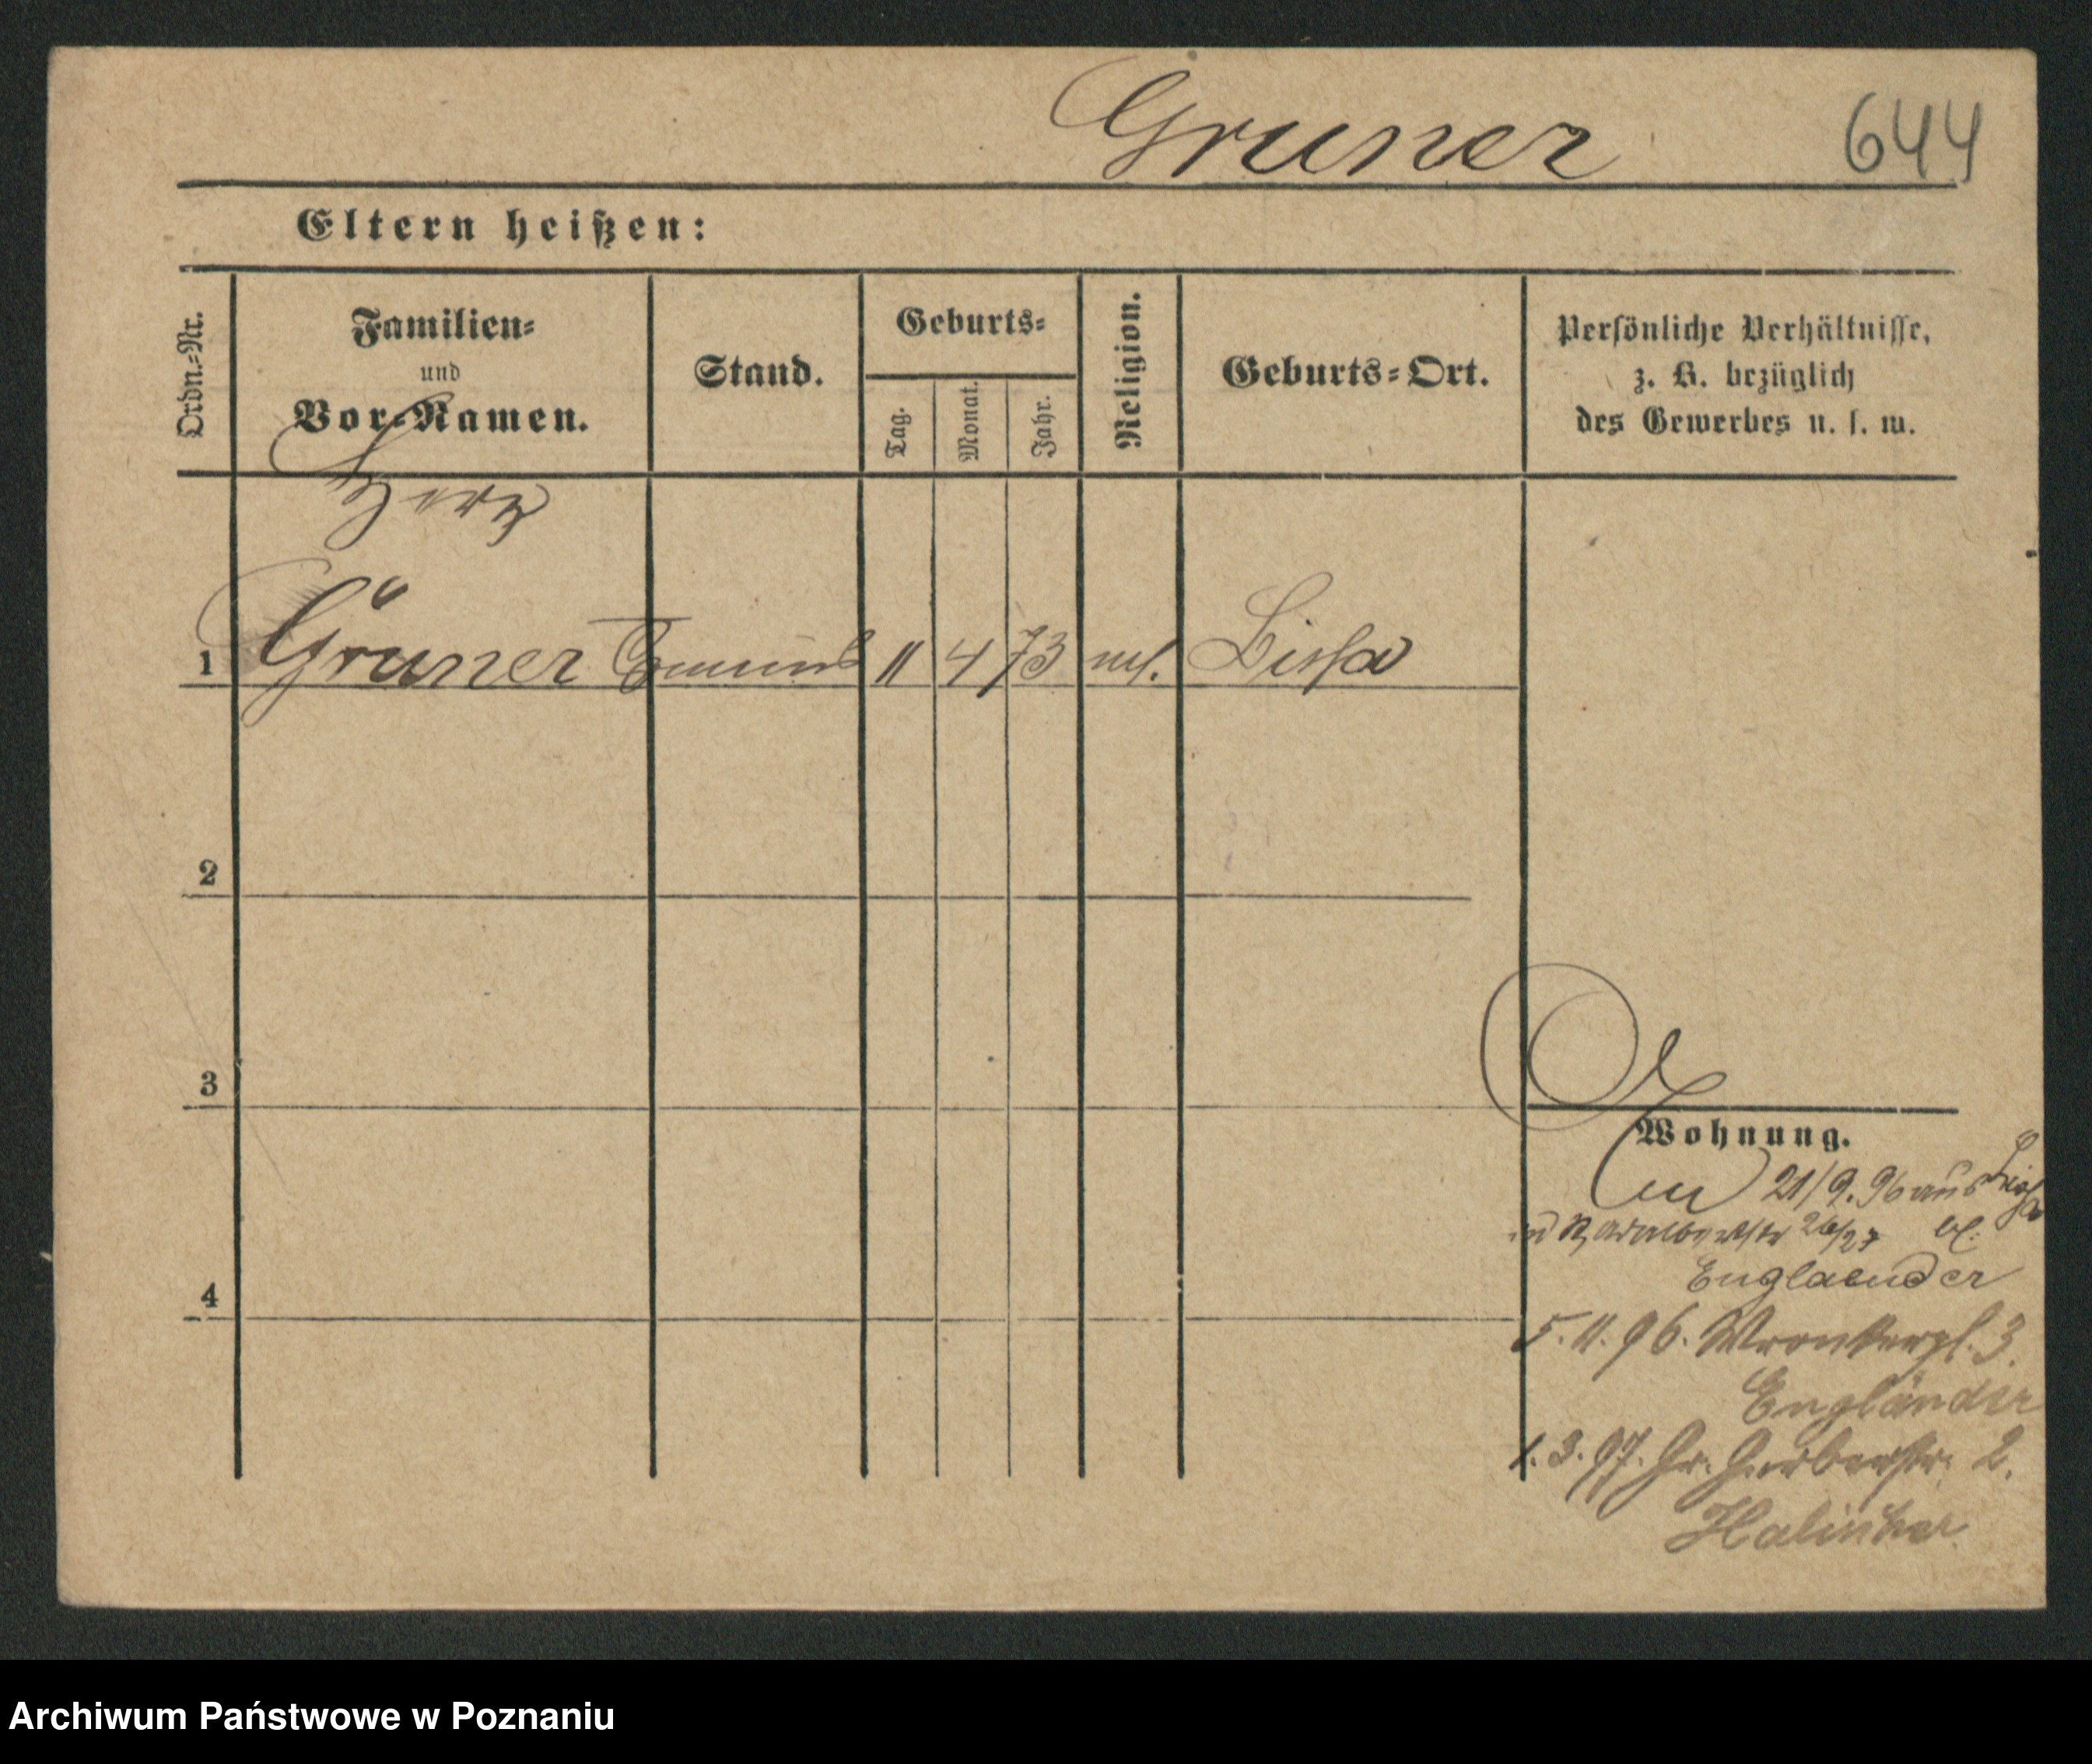 Gruner 644
Eltern heißen:
Ordn.-Nr.
Familien-
und
Vor-Namen.
Stand.
Geburts-
Tag.
Monat.
Jahr.
Religion.
Geburts-Ort.
Persönliche Verhältnisse,
z. B. bezüglich
des Gewerbes u. s. w.
1 Gruner 11 4 73 Lissa
2
3
4
Wohnung.
21/9. 96 aus Lissa
26/27
Englaender
5. 11. 96. Wronkerpl. 3.
Engländer
1. 3. 97. Gr. Gerberstr. 2.
Archiwum Państwowe w Poznaniu